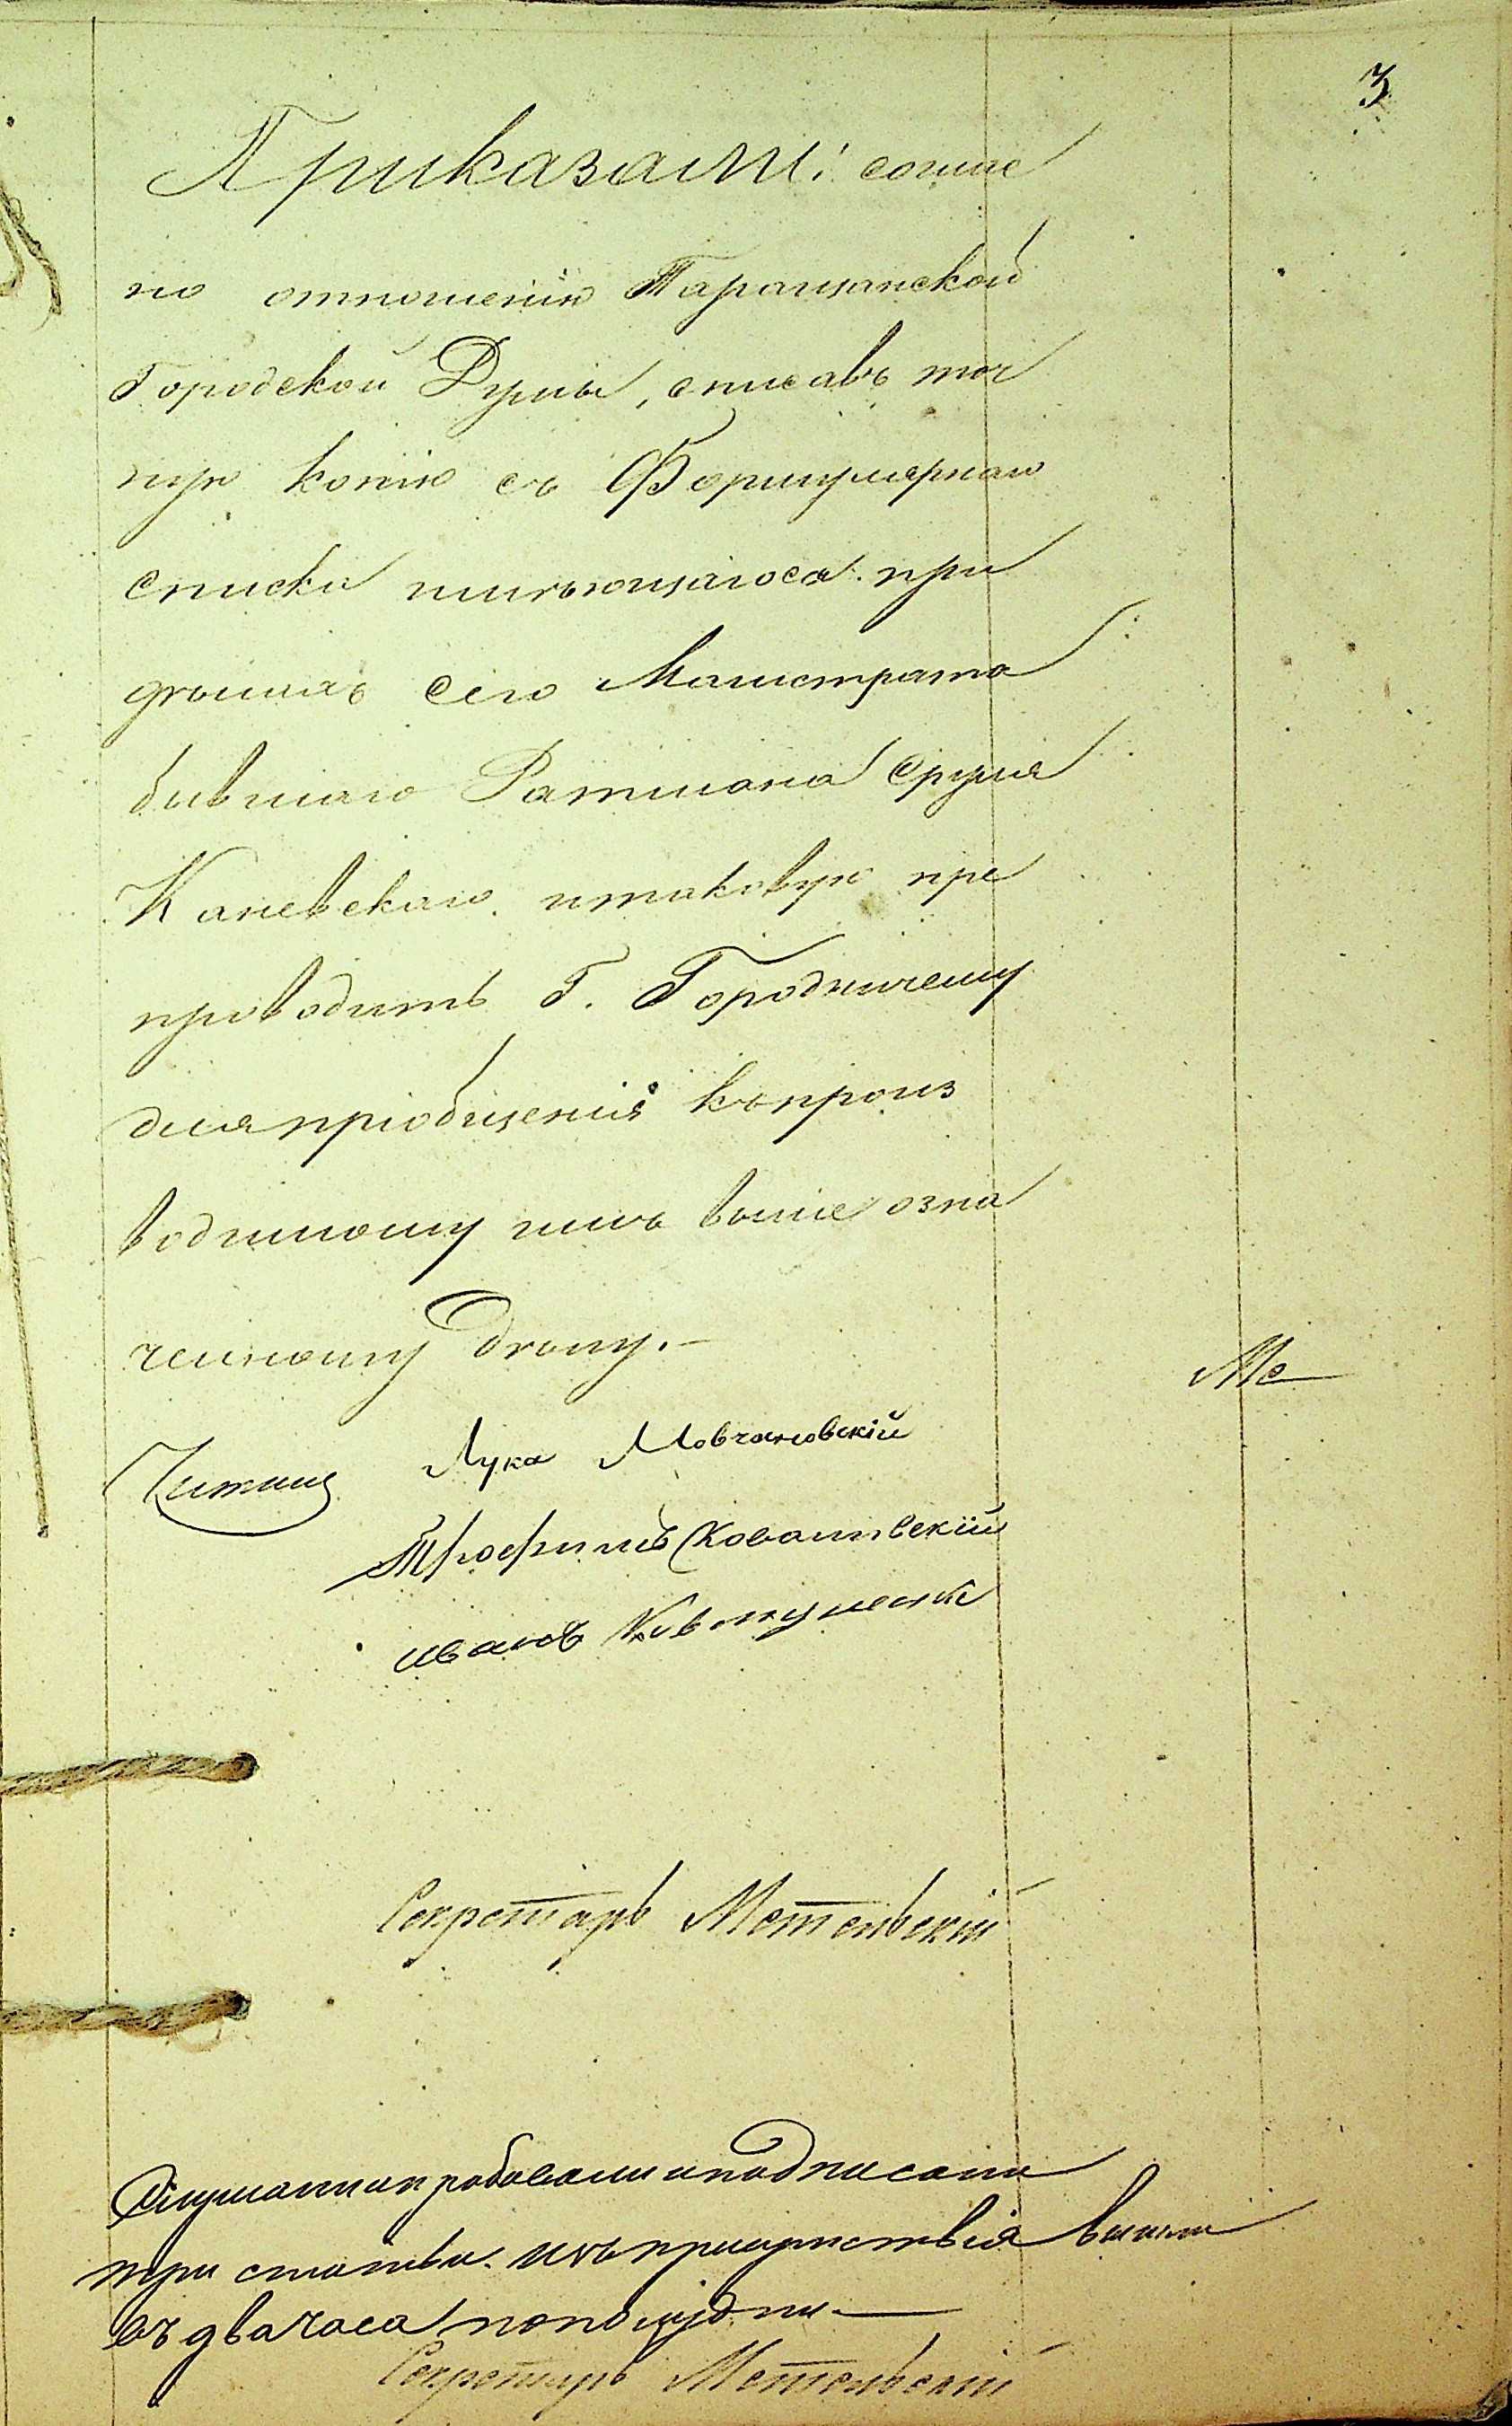 3
Приказали: соглас
но отношенію Таращанской
Городской Думы, списавъ точ
ную копію съ Формулярнаго
списка имѣющагося при
дѣлахъ сего Магистрата
бывшаго Ратмана Сруля
Каневскаго, итаковую пре
проводить Г. Городничему
для пріобщенія къ произ
водимому имъ выше озна
ченному дѣлу.—
Лука Мовчановскій
Трофимъ Ковалевскій
иванъ
Секретарь Метельскій
Слушали и пробовали и подписали
три статьи. Изъ присутствія вышли
въ два часа пополудни.—
Секретарь Метельскій